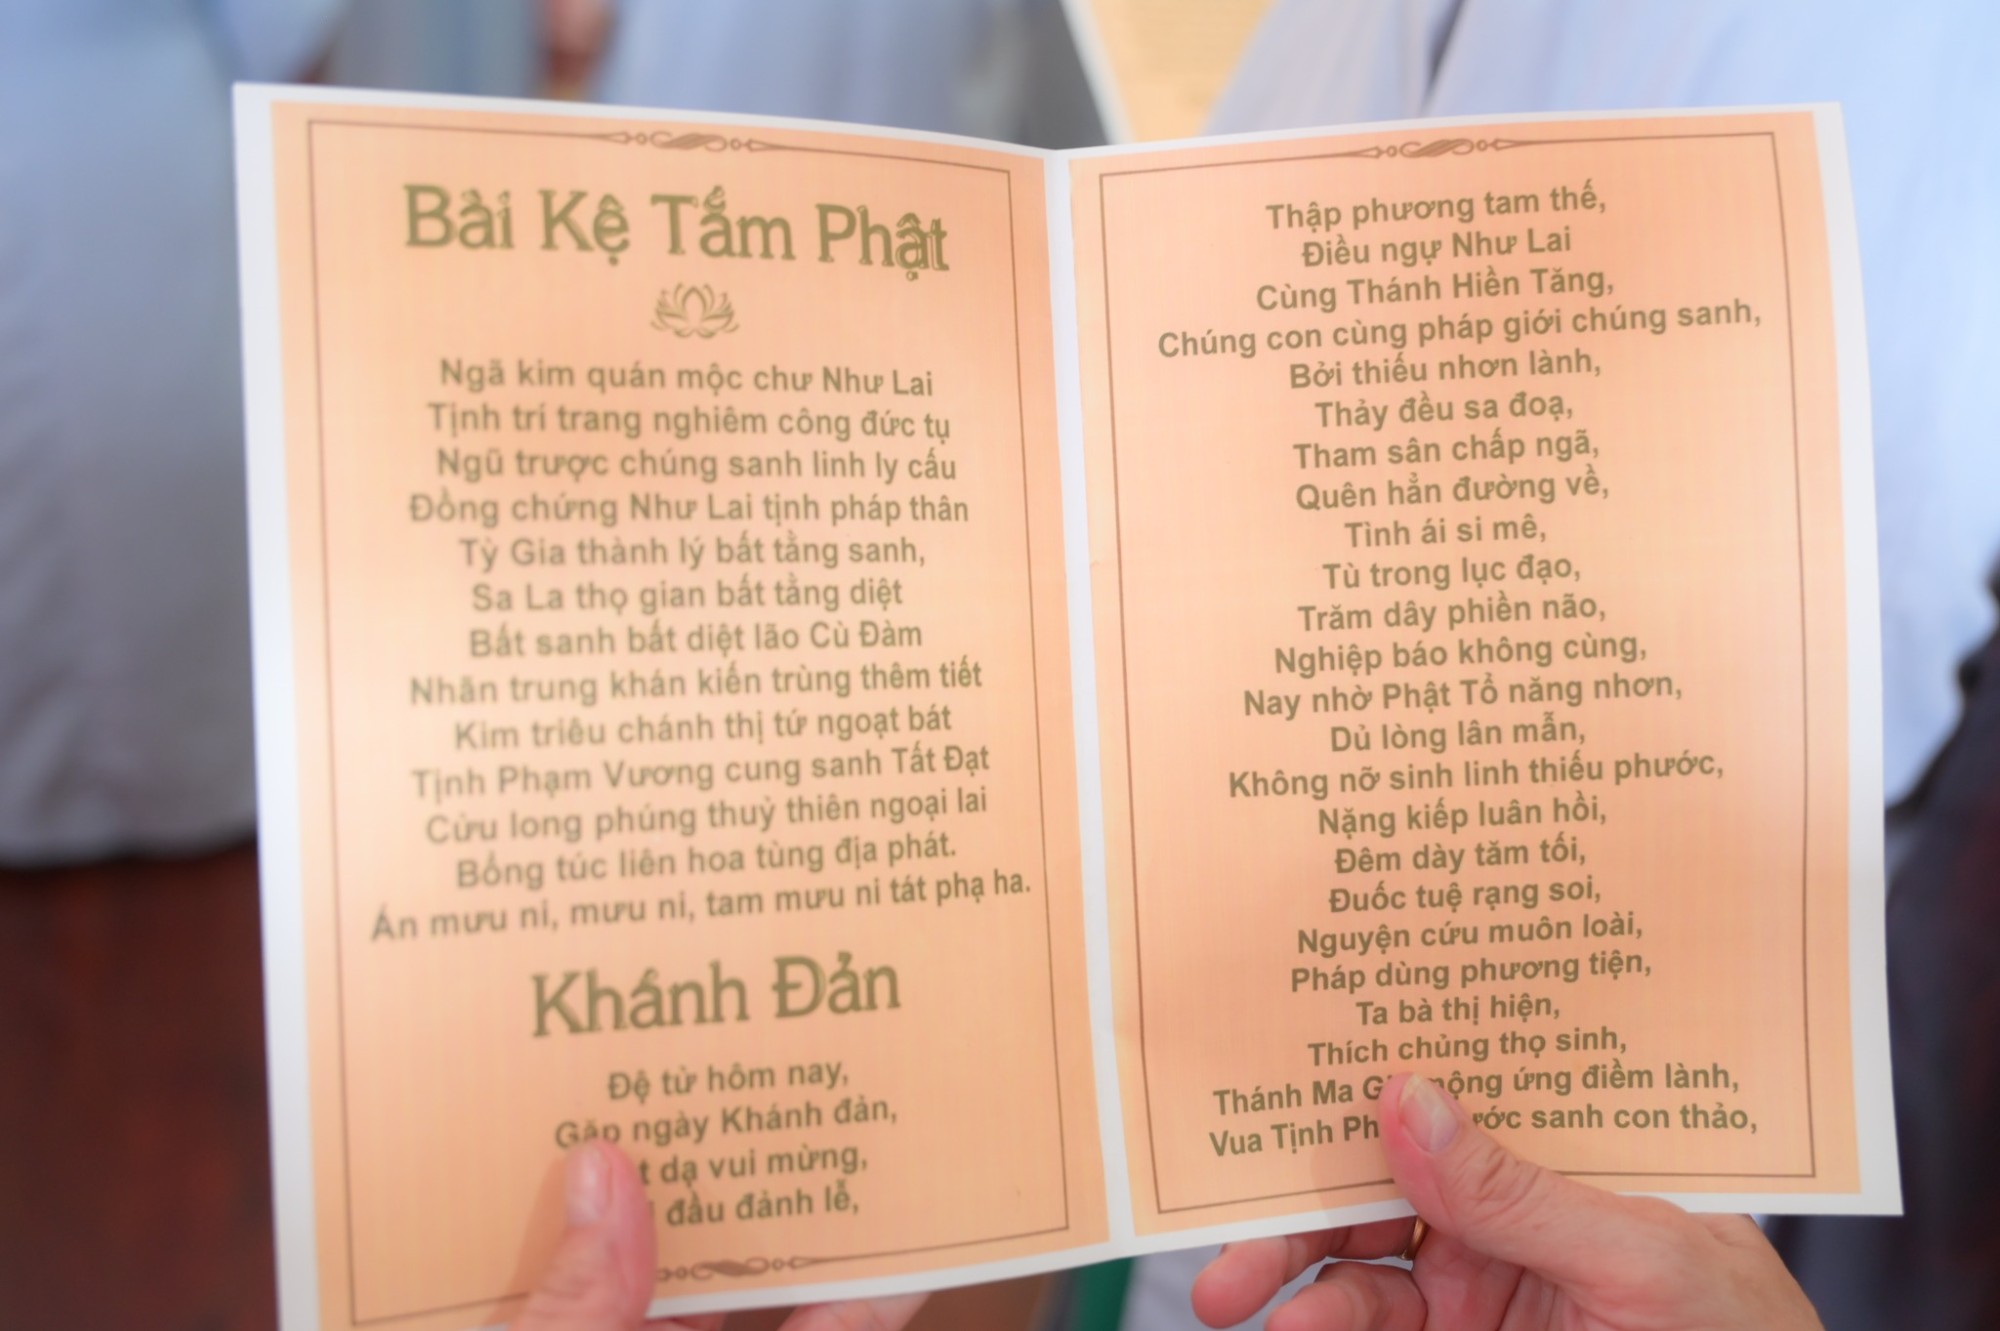 Bài Kệ Tắm Phật
Ngã kim quán mộc chư Như Lai
Tịnh trí trang nghiêm công đức tụ
Ngũ trược chúng sanh linh ly cấu
Đồng chứng Như Lai tịnh pháp thân
Tỳ Gia thành lý bất tằng sanh,
Sa La thọ gian bất tằng diệt
Bất sanh bất diệt lão Cù Đàm
Nhãn trung khán kiến trùng thêm tiết
Kim triêu chánh thị tứ ngoạt bát
Tịnh Phạm Vương cung sanh Tất Đạt
Cửu long phúng thuỷ thiên ngoại lai
Bổng túc liên hoa tùng địa phát.
Án mưu ni, mưu ni, tam mưu ni tát phạ ha.
Khánh Đản
Đệ tử hôm nay,
Gặp ngày Khánh đản,
dạ vui mừng,
đầu đảnh lễ,
Thập phương tam thế,
Điều ngự Như Lai
Cùng Thánh Hiền Tăng,
Chúng con cùng pháp giới chúng sanh,
Bởi thiếu nhơn lành,
Thảy đều sa đoạ,
Tham sân chấp ngã,
Quên hẳn đường về,
Tình ái si mê,
Tù trong lục đạo,
Trăm dây phiền não,
Nghiệp báo không cùng,
Nay nhờ Phật Tổ năng nhơn,
Dủ lòng lân mẫn,
Không nỡ sinh linh thiếu phước,
Nặng kiếp luân hồi,
Đêm dày tăm tối,
Đuốc tuệ rạng soi,
Nguyện cứu muôn loài,
Pháp dùng phương tiện,
Ta bà thị hiện,
Thích chủng thọ sinh,
Thánh Ma mộng ứng điềm lành,
Vua Tịnh sanh con thảo,